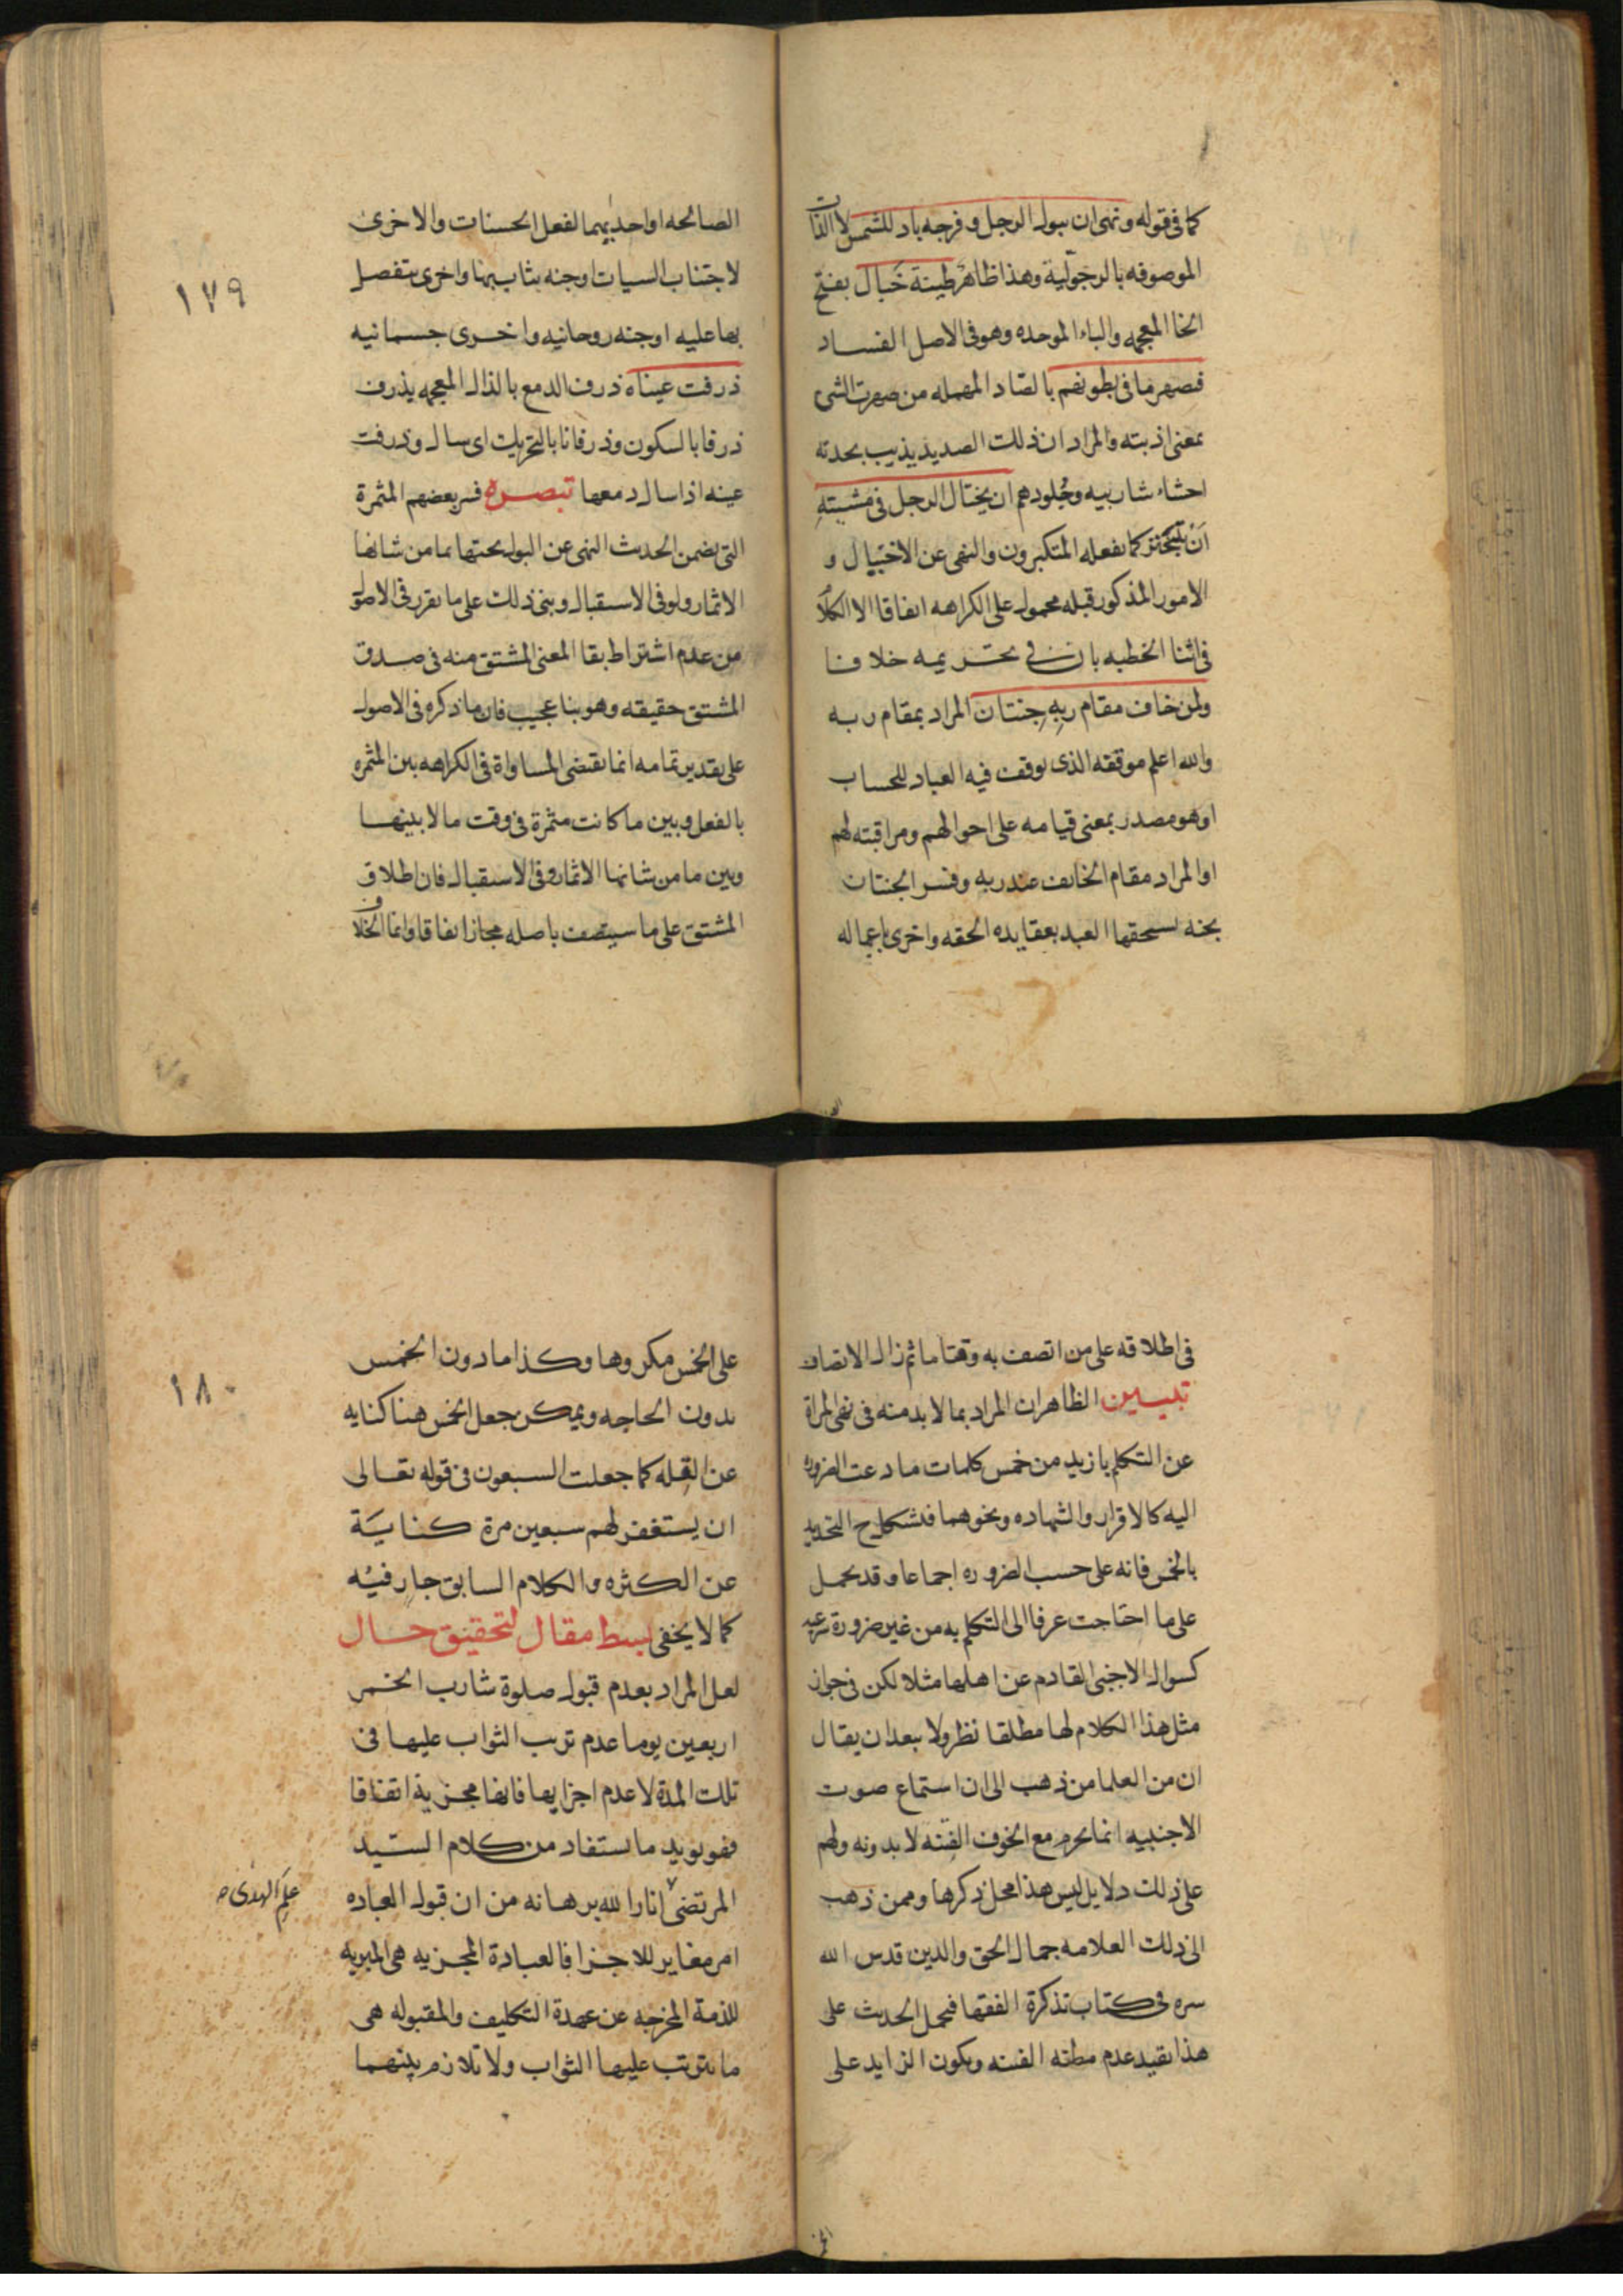 كما فی قوله ونهی ان يبول الرجل وفرجه باد للشمس لا الذات
الموصوفه بالرجولية وهذا ظاهر طينة خَبال بفتح
الخا المعجمه والباء الموحده وهو فی الاصل الفساد
فصهر ما فی بطونهم بالصاد المهمله من صهرت الشی
بمعنی اذبته والمراد ان ذلك الصديد يذيب بحدته
احشاء شاربيه وجُلودهم ان يختال الرجل فی مشيتهِ
اَنْ يتبختر كما يفعله المتكبرون والنهی عن الاختيال و
الامور المذكور قبله محمول علی الكراهه اتفاقا الا الكلام
فی اثنا الخطبه فان فی تحريمه خلافا
ولمن خاف مقام ربهِ جنتان المراد بمقام ربه
والله اعلم موقفه الذی يوقف فيه العباد للحساب
او هو مصدر بمعنی قيامه علی احوالهم ومراقبته لهم
او المراد مقام الخايف عند ربه وفسر الجنتان
بجنه يستحقها العبد بعقايده الحقه واخری باعماله
الصالحه او احديهما لفعل الحسنات والاخری
لاجتناب السيات او جنه يثاب بها واخری يتفضل
بها عليه او جنه روحانيه واخری جسمانيه
ذرفت عيناه ذرف الدمع بالذال المعجمه يذرف
ذرفا بالسكون وذرفانا بالتحريك ای سال وذرفت
عينه اذا سال دمعها تبصره فسر بعضهم المثمرة
التی تضمن الحديث النهی عن البول تحتها بما من شانها
الاثمار ولو فی الاستقبال وبنی ذلك علی ما تقرر فی الاصول
من عدم اشتراط بقا المعنی المشتق منه فی صدق
المشتق حقيقه وهو بنا عجيب فان ما ذكره فی الاصول
علی تقدير تمامه انما يقتضی المساواة فی الكراهه بين المثمره
بالفعل وبين ما كانت مثمرة فی وقت ما لا بينها
وبين ما من شانها الاثمار فی الاستقبال فان اطلاق
المشتق علی ما سيتصف باصله مجاز اتفاقا وانما الخلاف
١٧٩
فی اطلاقه علی من اتصف به وقتا ما ثم زال الاتصاف
تبيين الظاهر ان المراد بما لابد منه فی نهی المراة
عن التكلم بازيد من خمس كلمات ما دعت الضروره
اليه كالاقرار والشهاده ونحوهما فيشكل ح التحديد
بالخمس فانه علی حسب الضروره اجماعا وقد يحمل
علی ما احتاجت عرفا الی التكلم به من غير ضرورة شرعيه
كسوال الاجنبی القادم عن اهلها مثلا لكن فی جواز
مثل هذا الكلام لها مطلقا نظر ولا يبعد ان يقال
ان من العلما من ذهب الی ان استماع صوت
الاجنبيه انما يحرم مع الخوف الفتنه لا بدونه ولهم
علی ذلك دلايل ليس هذا محل ذكرها وممن ذهب
الی ذلك العلامه جمال الحق والدين قدس الله
سره فی كتاب تذكرة الفقها فيحمل الحديث علی
هذا بقيد عدم مظنه الفتنه ويكون الزايد علی
علی الخمس مكروها وكذا ما دون الخمس
بدون الحاجه ويمكن جعل الخمس هنا كنايه
عن القِله كما جعلت السبعون فی قوله تعالی
ان يستغفر لهم سبعين مرة كنايَة
عن الكثره والكلام السابق جارٍ فيه
كما لا يخفی بسط مقال لتحقيق حال
لعل المراد بعدم قبول صلوة شارب الخمر
اربعين يوما عدم ترتب الثواب عليها فی
تلك المدة لا عدم اجزايها فانها مجزية اتفاقا
فهو يويد ما يستفاد من كلام السيّد
المرتضی انار الله برهانه من ان قبول العباده
علم الهدی ص
امر مغاير للاجزا فالعبادة المجزيه هی المبريه
للذمة المخرجه عن عهدة التكليف والمقبوله هی
ما يترتب عليها الثواب ولا تلازم بينهما
١٨٠